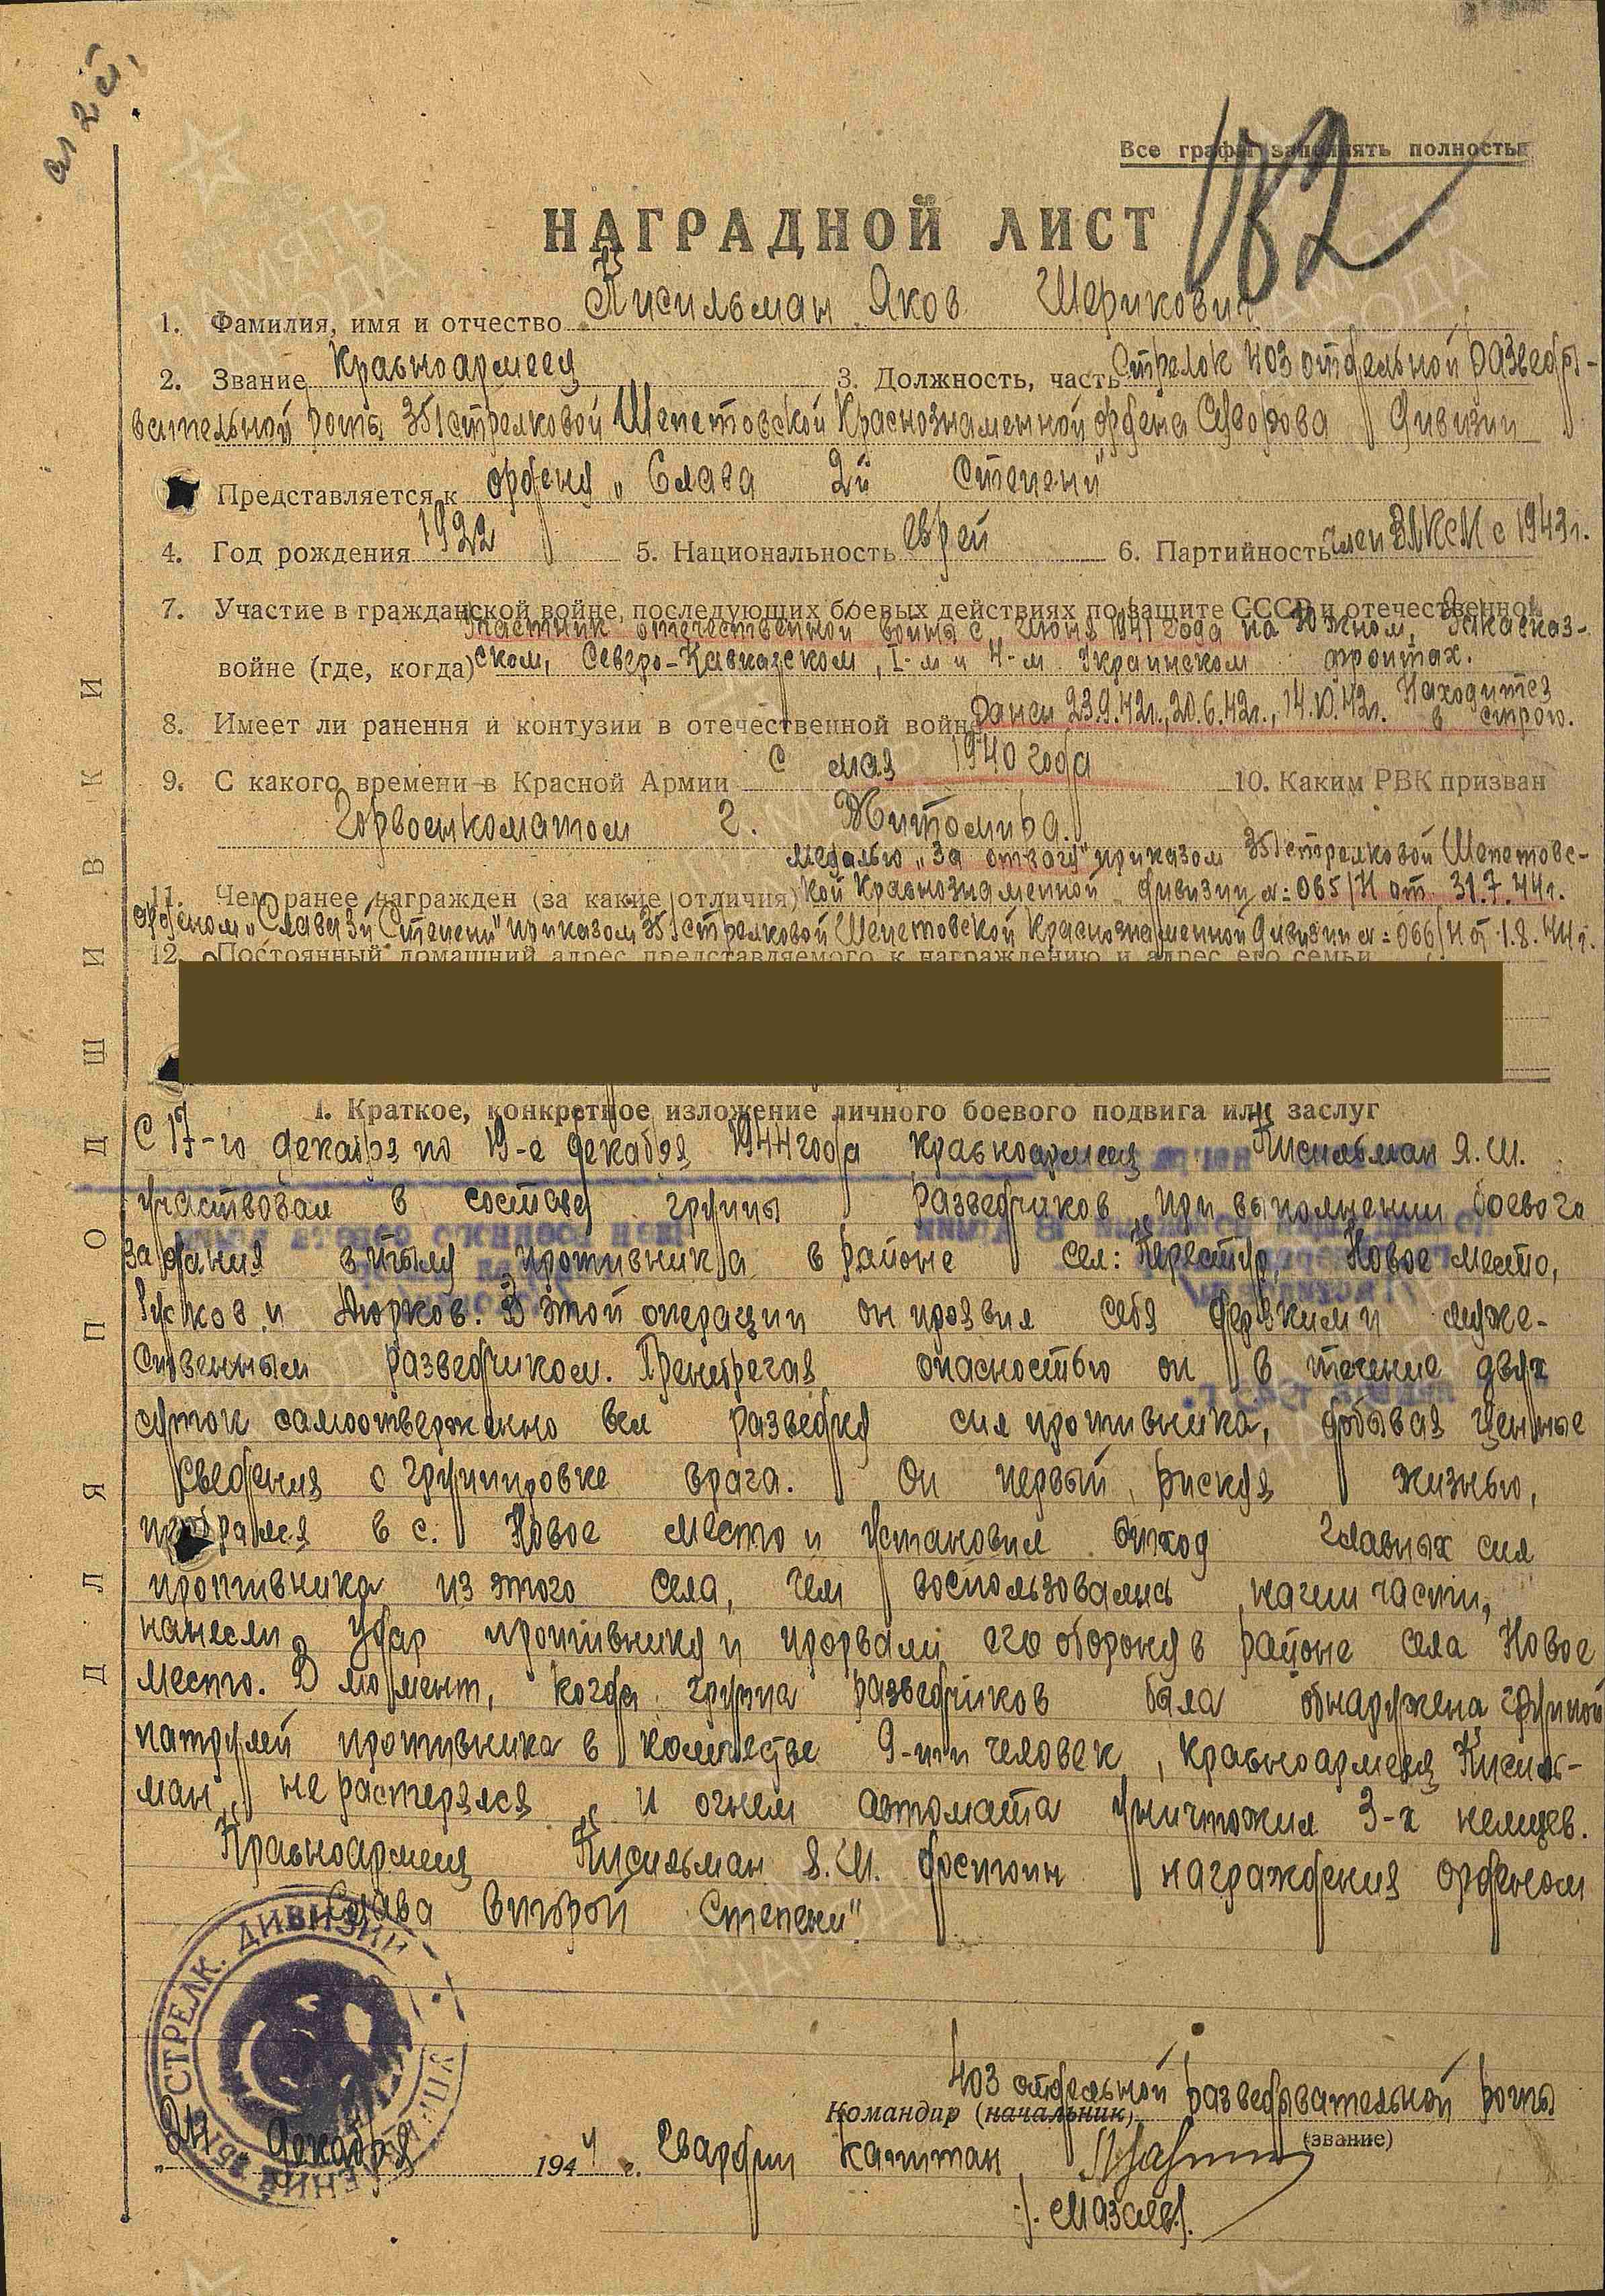 Сл 2 й,
Все графы заполнять полностью
182
НАГРАДНОЙ ЛИСТ
1. Фамилия, имя и отчество Кисильман Яков Шерикович
2. Звание Красноармеец 3. Должность, часть Стрелок 403 отдельной разведы-
вательной роты 351 стрелковой Шепетовской Краснознаменной ордена Суворова Дивизии
Представляется к ордену „Слава 2й Степени"
4. Год рождения 1922 5. Национальность еврей 6. Партийность член ВЛКСМ с 1943г.
7. Участие в гражданской войне, последующих боевых действиях по защите СССР и отечественной
Участник отечественной войны с июня 1941 года на Южном, Закавказ-
войне (где, когда) ском, Северо-Кавказском, I-м и 4-м Украинском фронтах.
8. Имеет ли ранення и контузии в отечественной войне Ранен 23.9.42г., 20.6.42г., 14.10.42г. Находится в строю.
9. С какого времени в Красной Армии С мая 1940 года 10. Каким РВК призван
Горвоенкоматом г. Житомира.
медалью „За отвагу" приказом 351 стрелковой Шепетовс-
11. Чем ранее награжден (за какие отличия) кой Краснознаменной дивизии №: 065/Н от 31.7.44г.
орденом „Слава 3й Степени" приказом 351 стрелковой Шепетовской Краснознаменной Дивизии №: 066/Н от 1.8.44г.
12. Постоянный домашний адрес представляемого к награждению и адрес его семьи
I. Краткое, конкретное изложение личного боевого подвига или заслуг
С 17-го декабря по 19-е декабря 1944 года красноармеец Кисильман Я.Ш.
участвовал в составе группы разведчиков при выполнении боевого
задания в тылу противника в районе сел: Новое Место,
и Юрков. В этой операции он проявил себя дерзким и муже-
ственным разведчиком. Пренебрегая опасностью он в течение двух
суток самоотверженно вел разведку сил противника, добывая ценные
сведения о группировке врага. Он первый, рискуя жизнью,
пробрался в с. Новое Место и установил отход главных сил
противника из этого села, чем воспользовались наши части,
нанесли удар противнику и прорвали его оборону в районе села Новое
Место. В момент, когда группа разведчиков была обнаружена групой
патрулей противника в количестве 9-ти человек, красноармеец Кисиль-
ман не растерялся и огнем автомата уничтожил 3-х немцев.
Красноармеец Кисильман Я.Ш. достоин награждения орденом
„Слава Второй Степени".
403 отдельной разведывательной роты
Командир (начальник)
(звание)
24 Декабря 1944 г. Гвардии капитан
/Мазаев/.
СТРЕЛК. ДИВИЗИИ
ДЛЯ ПОДШИВКИ
ПАМЯТЬ НАРОДА